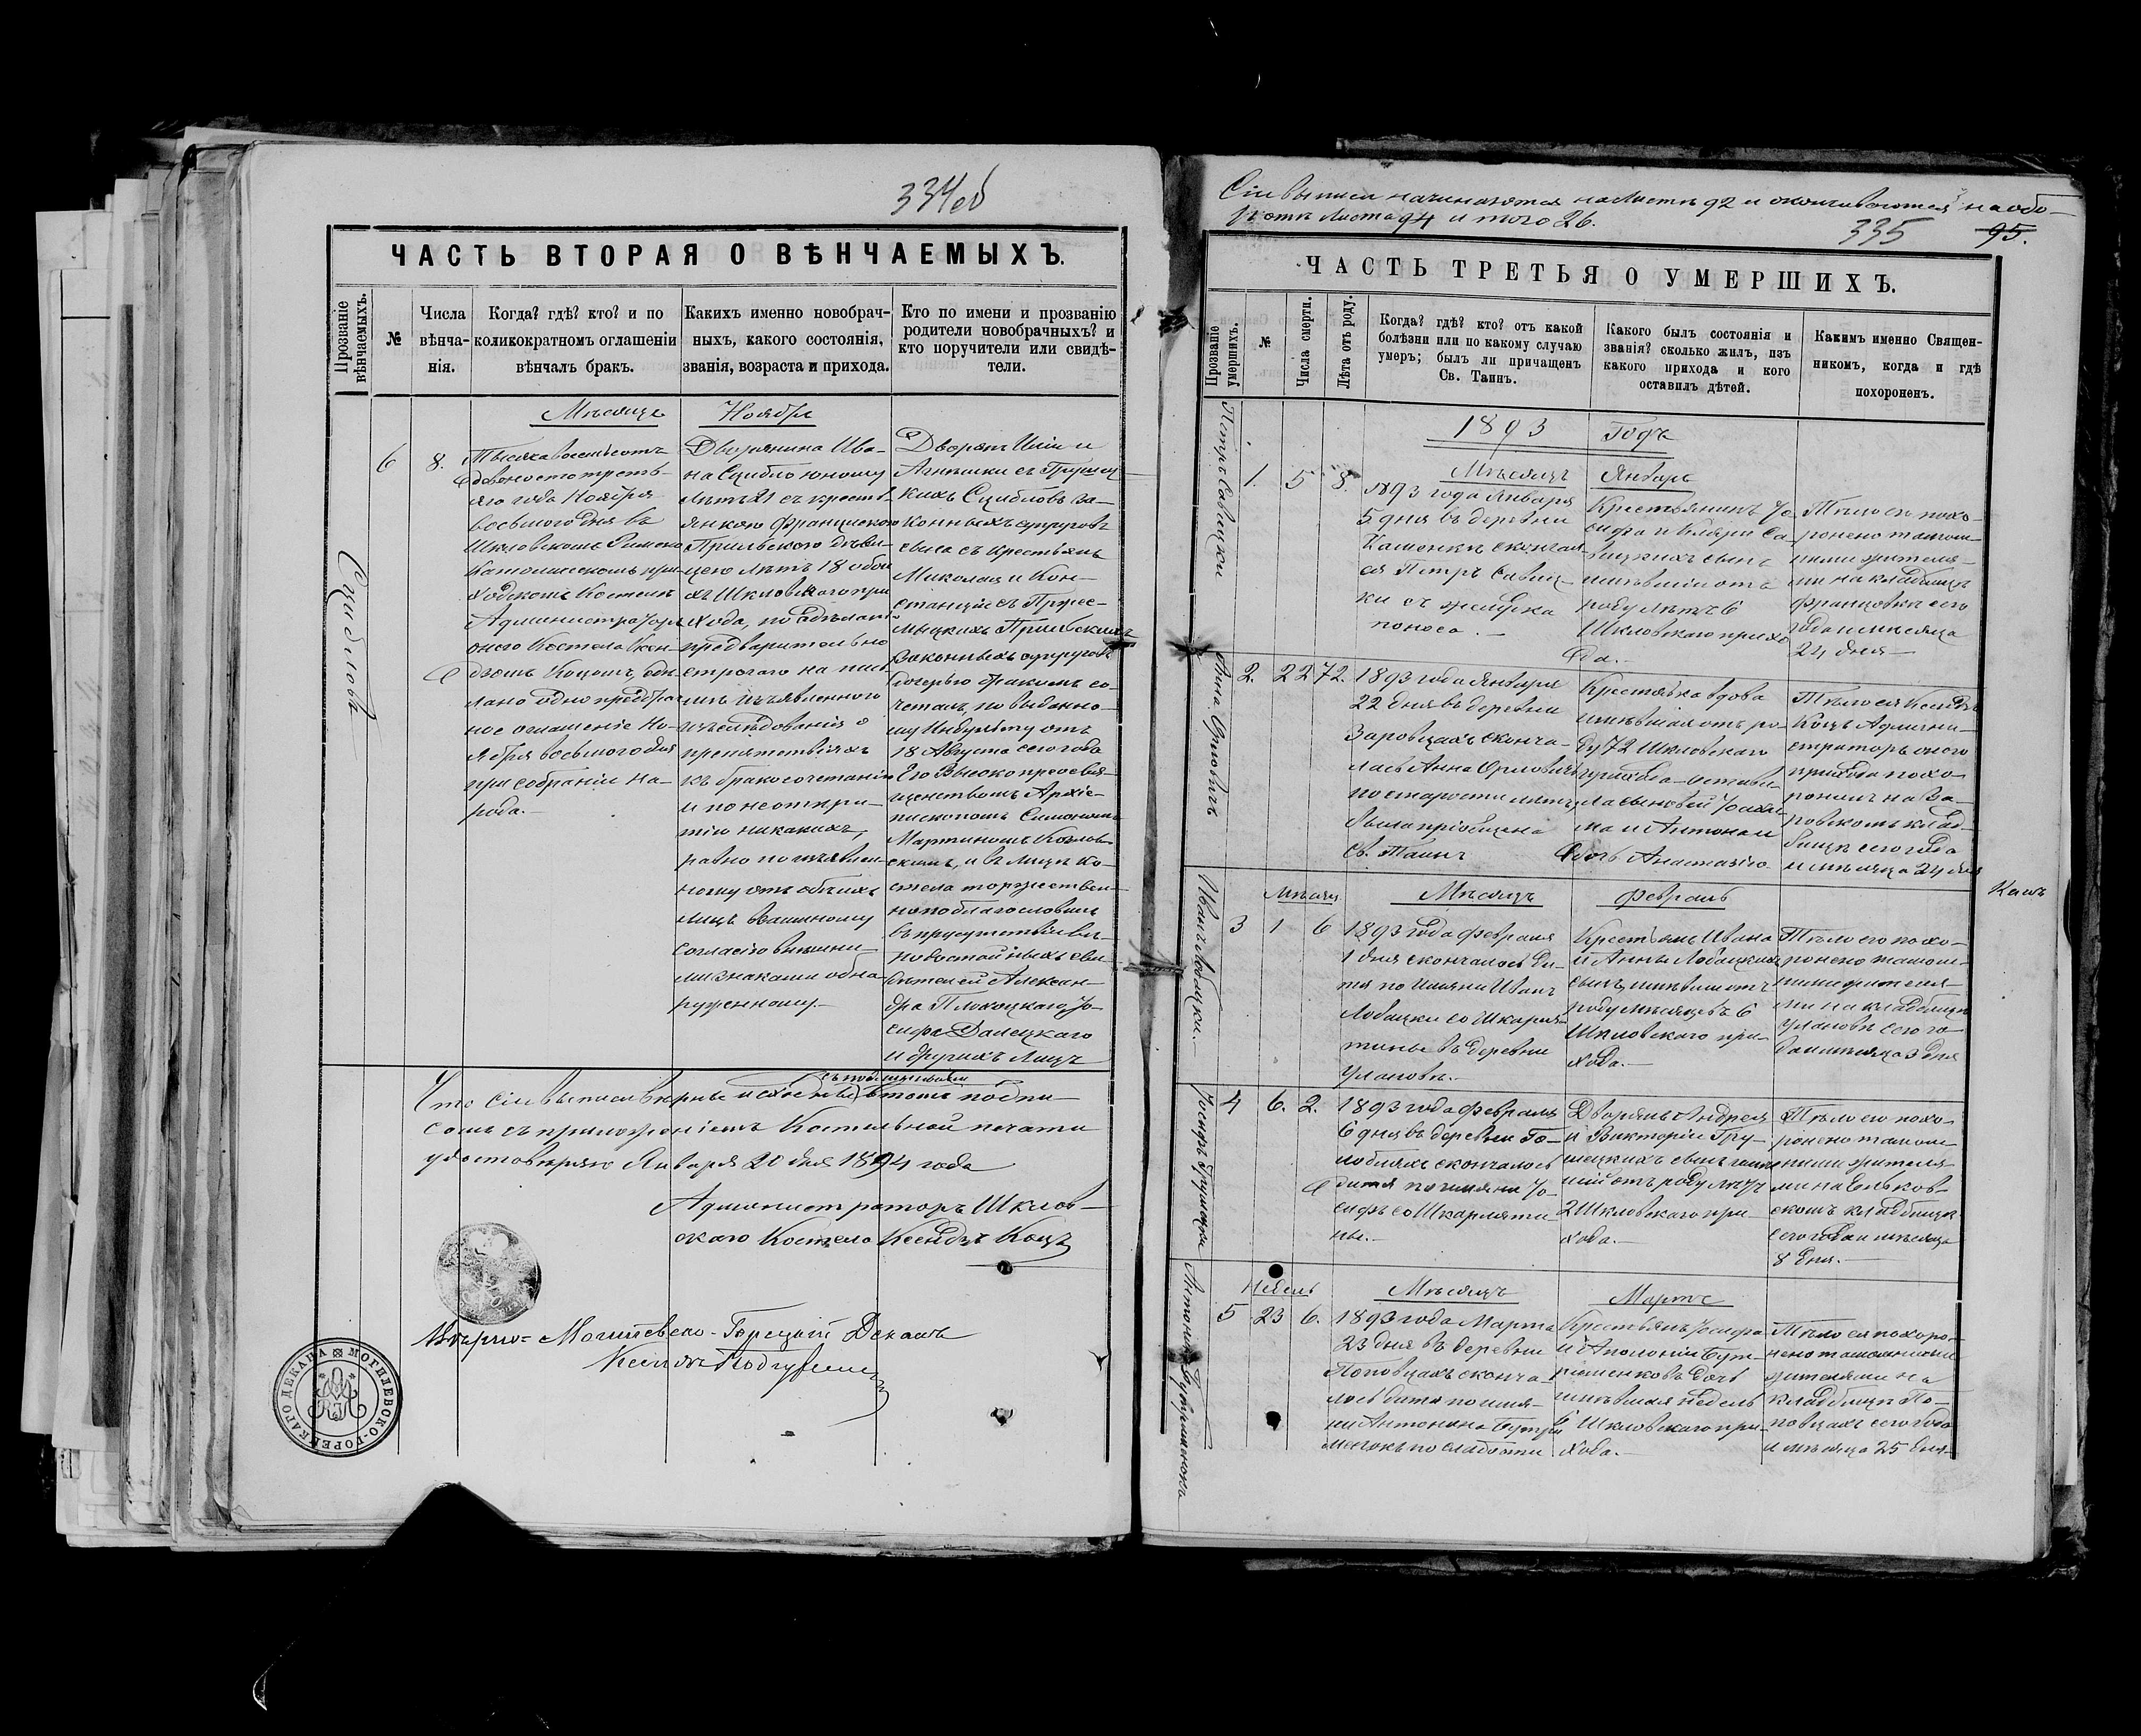 334об
ЧАСТЬ ВТОРАЯ О ВѢНЧАЕМЫХЪ.
Прозваніе вѣнчаемыхъ.
№
Числа вѣнча-нія.
Когда? гдѣ? кто? и по
коликократномъ оглашеніи
вѣнчалъ бракъ.
Какихъ именно новобрач-
ныхъ, какого состоянія,
званія, возраста и прихода.
Кто по имени и прозванію
родители новобрачныхъ? и
кто поручители или свидѣ-
тели.
Мѣсяцъ Ноябрь
6
8.
Тысяча восемьсотъ
девяносто треть-
яго года Ноября
восьмого дня въ
Шкловскомъ Римско
Католическомъ при-
ходскомъ Костелѣ
Администраторъ
оного Костела Ксен-
дзомъ Коцомъ, сдѣ-
лано одно предбрач
ное оглашеніе Но-
ября восьмого дня
при собраніи на-
рода.
Дворянина Ива-
на Сцибло юношу
лѣтъ 21 съ крестъ-
янкою Францискою
Прильвского дѣви-
цею лѣтъ 18 обои
хъ Шкловскаго при
хода, по сдѣланіи
предварительно
строгаго на пись
мѣ изъявленного
изслѣдованія о
препятствіяхъ
къ бракосочетанію
и по неоткры-
тіи никакихъ,
равно по изъявлен-
ному отъ обѣихъ
лицъ взаимному
согласію внѣшни-
ми знаками обна-
руженному.
Дворянъ и
Агнешки съ Грушец
кихъ Сцибловъ за-
конныхъ супруговъ
сына съ крестьянъ
Миколая и Кон-
станціи съ
законныхъ супруговъ
дочерью бракомъ со-
четалъ, по выданно-
му Индульту отъ
18 Августа сего года
Его Высокопреосвя-
щенствомъ Архіе-
пископомъ Симономъ
Мартиномъ Козлов-
скимъ, и въ лицѣ ко-
стела торжествен-
но поблагословилъ
въ присутствіи вѣ-
родостойныхъ сви-
дѣтелей Алексан-
дра Плокоцкаго, Іо-
сифа Далецкаго
и другихъ лицъ
Что сіи выписи вѣрны и сходны въ томъ подпи-
сомъ съ приложеніемъ Костельной печати
удостовѣряю Января 20 дня 1894 года
Администраторъ Шклов-
скаго Костела Ксендзъ Коцъ
Вѣрно= Могилевско-Горецкій Деканъ
Ксендзъ
МОГИЛЕВСКО-ГОРЕЦКАГО ДЕКАНА
Сіи выписи начинаются на листѣ 92 и окончиваются на обо-
ротѣ листа 94 итого 26.
335
95.
ЧАСТЬ ТРЕТЬЯ О УМЕРШИХЪ.
Прозваніе умершихъ.
№
Числа смерти.
Лѣта отъ роду.
Когда? гдѣ? кто? отъ какой
болѣзни или по какому случаю
умеръ; былъ ли причащенъ
Св. Таинъ.
Какого былъ состоянія и
званія? сколько жилъ, изъ
какого прихода и кого
оставилъ дѣтей.
Какимъ именно Священ-
никомъ, когда и гдѣ
похороненъ.
1893 Годъ
Мѣсяцъ Январь
Петръ Савицки
1.
5
8.
1893 года Января
5 дня въ деревни
Каменкѣ скончал-
ся Петръ Савиц-
ки съ желудка
поноса.
Крестьянинъ Іо-
сифа и Са-
вицкихъ сынъ
имѣвшій отъ
роду лѣтъ 6
Шкловскаго прихо
да.
Тѣло съ похо-
ронено тамош-
ними жителя-
ми на кладбищѣ
Францовкѣ сего
года и мѣсяца
24 дня
Анна Орловичъ
2.
22
72.
1893 года Января
22 дня въ деревни
Заровцахъ сконча-
лась Анна Орловичъ
по старости лѣтъ,
была пріобщена
св. Таинъ
Крестьянка вдова
имѣвшая отъ ро-
ду 72 Шкловскаго
прихода оставив-
ла сыновей Іохи-
ма и Антона и
дочь Анастазію
Тѣло ея Ксендзъ
Коцъ Админи-
страторъ оного
прихода похо-
ронилъ на За-
ровскомъ клад-
бищѣ сего года
и мѣсяца 24 дня
Коцъ
Иванъ Лобацки.
Мѣсяц
Мѣсяцъ Февраль
3
1
6
1893 года Февраля
1 дня скончалось ди-
тя по имяни Иванъ
Лобацки со Шкарля-
тины въ деревни
Улановкѣ.
Крестьянъ Ивана
и Анны Лобацкихъ
сынъ, имѣвши отъ
роду мѣсяцевъ 6
Шкловского при-
хода.
Тѣло его похо-
ронено тамош-
ними жителя-
ми на кладбищѣ
Улановкѣ сего го-
да и мѣсяца 3 дня
Іосифъ Грушецки
4
6.
2.
1893 года Февраля
6 дня въ деревни Го-
лобляхъ скончалось
дитя по имяни Іо-
сифъ со Шкарляти-
ны.
Дворянъ Андрея
и Викторіи Гру-
шецкихъ сынъ имѣв
шій отъ роду лѣтъ
2 Шкловскаго при-
хода.
Тѣло его похо-
ронено тамош-
ними жителя-
ми на
скомъ кладбищѣ
сего года и мѣсяца
8 дня.
Антонина Бутрименокъ
Недѣль
Мѣсяцъ Мартъ
5
23
6.
1893 года Марта
23 дня въ деревни
Поповцахъ сконча-
лось дитя по имя-
ни Антонина Бутри
менокъ по слабости
Крестьянъ Іосифа
и Аполоніи Бут-
рименковъ дочь
имѣвшая недель
6 Шкловскаго при-
хода.
Тѣло ея похоро-
нено тамошними
жителями на
кладбищѣ По-
повцахъ сего года
и мѣсяца 25 дня